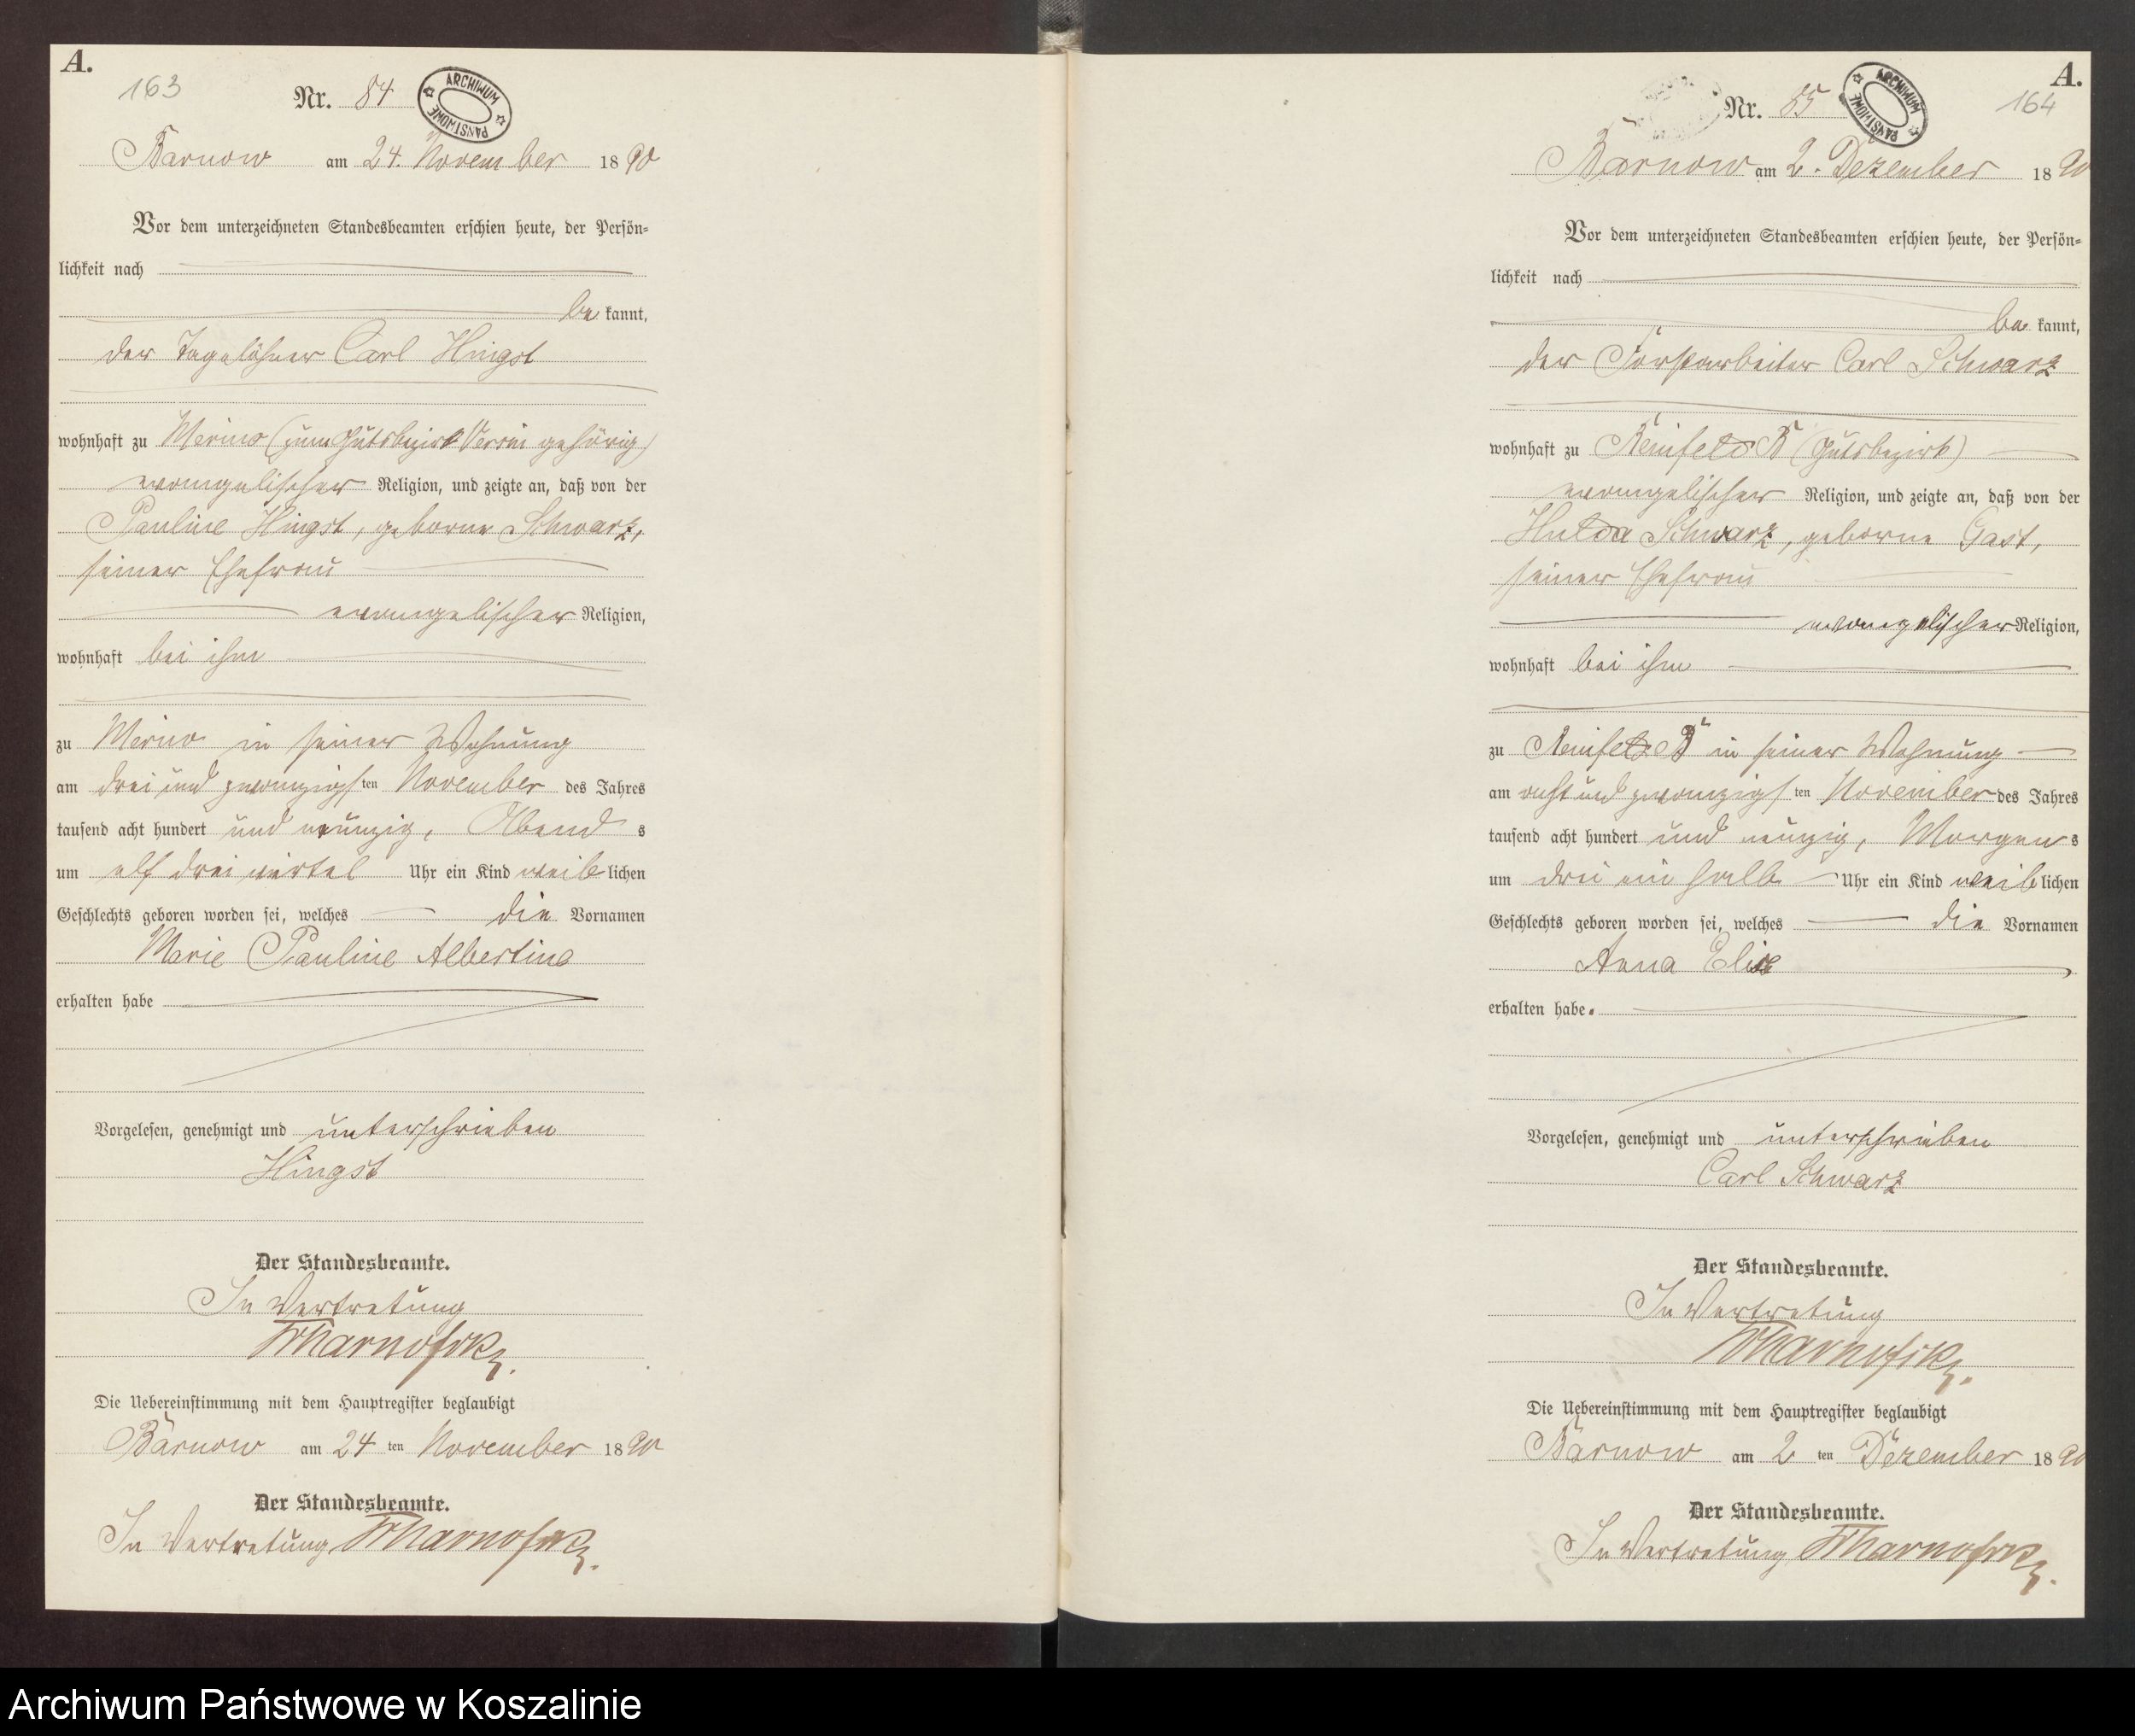 A.
163
Nr. 84
ARCHIWUM PAŃSTWOWE
Barnow am 24. November 1890
Vor dem unterzeichneten Standesbeamten erschien heute, der Persön-
lichkeit nach
be kannt,
der Tagelöhner Carl Hingst
wohnhaft zu Merino (zum Gutsbezirk Versin gehörig)
evangelischer Religion, und zeigte an, daß von der
Pauline Hingst, geborne Schwarz,
seiner Ehefrau
evangelischer Religion,
wohnhaft bei ihm
zu Merino in seiner Wohnung
am drei und zwanzigsten November des Jahres
tausend acht hundert und neunzig, Abend s
um elf drei viertel Uhr ein Kind weib lichen
Geschlechts geboren worden sei, welches die Vornamen
Marie Pauline Albertine
erhalten habe
Vorgelesen, genehmigt und unterschrieben
Hingst
Der Standesbeamte.
In Vertretung
Die Uebereinstimmung mit dem Hauptregister beglaubigt
Barnow am 24 ten November 1890
Der Standesbeamte.
In Vertretung
A.
164
Nr. 85
ARCHIWUM PAŃSTWOWE
Barnow am 2. Dezember 1890
Vor dem unterzeichneten Standesbeamten erschien heute, der Persön-
lichkeit nach
be kannt,
der Forstarbeiter Carl Schwarz
wohnhaft zu Reinfeld B (Gutsbezirk)
evangelischer Religion, und zeigte an, daß von der
Hulda Schwarz, geborne Gast,
seiner Ehefrau
evangelischer Religion,
wohnhaft bei ihm
zu Reinfeld B in seiner Wohnung
am acht und zwanzigsten November des Jahres
tausend acht hundert und neunzig, Morgen s
um drei ein halb Uhr ein Kind weib lichen
Geschlechts geboren worden sei, welches die Vornamen
Anna Elise
erhalten habe.
Vorgelesen, genehmigt und unterschrieben
Carl Schwarz
Der Standesbeamte.
In Vertretung
Die Uebereinstimmung mit dem Hauptregister beglaubigt
Barnow am 2 ten Dezember 1890
Der Standesbeamte.
In Vertretung
Archiwum Państwowe w Koszalinie